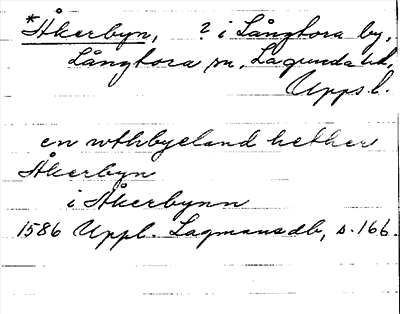 *Åkerbyn, ? i Långtora by,
Långtora sn, Lagunda hd,
Upps. l.
en wthbyeland hether
Åkerbyn
i Åkerbynn
1586 Uppl. Lagmansdb, s. 166.